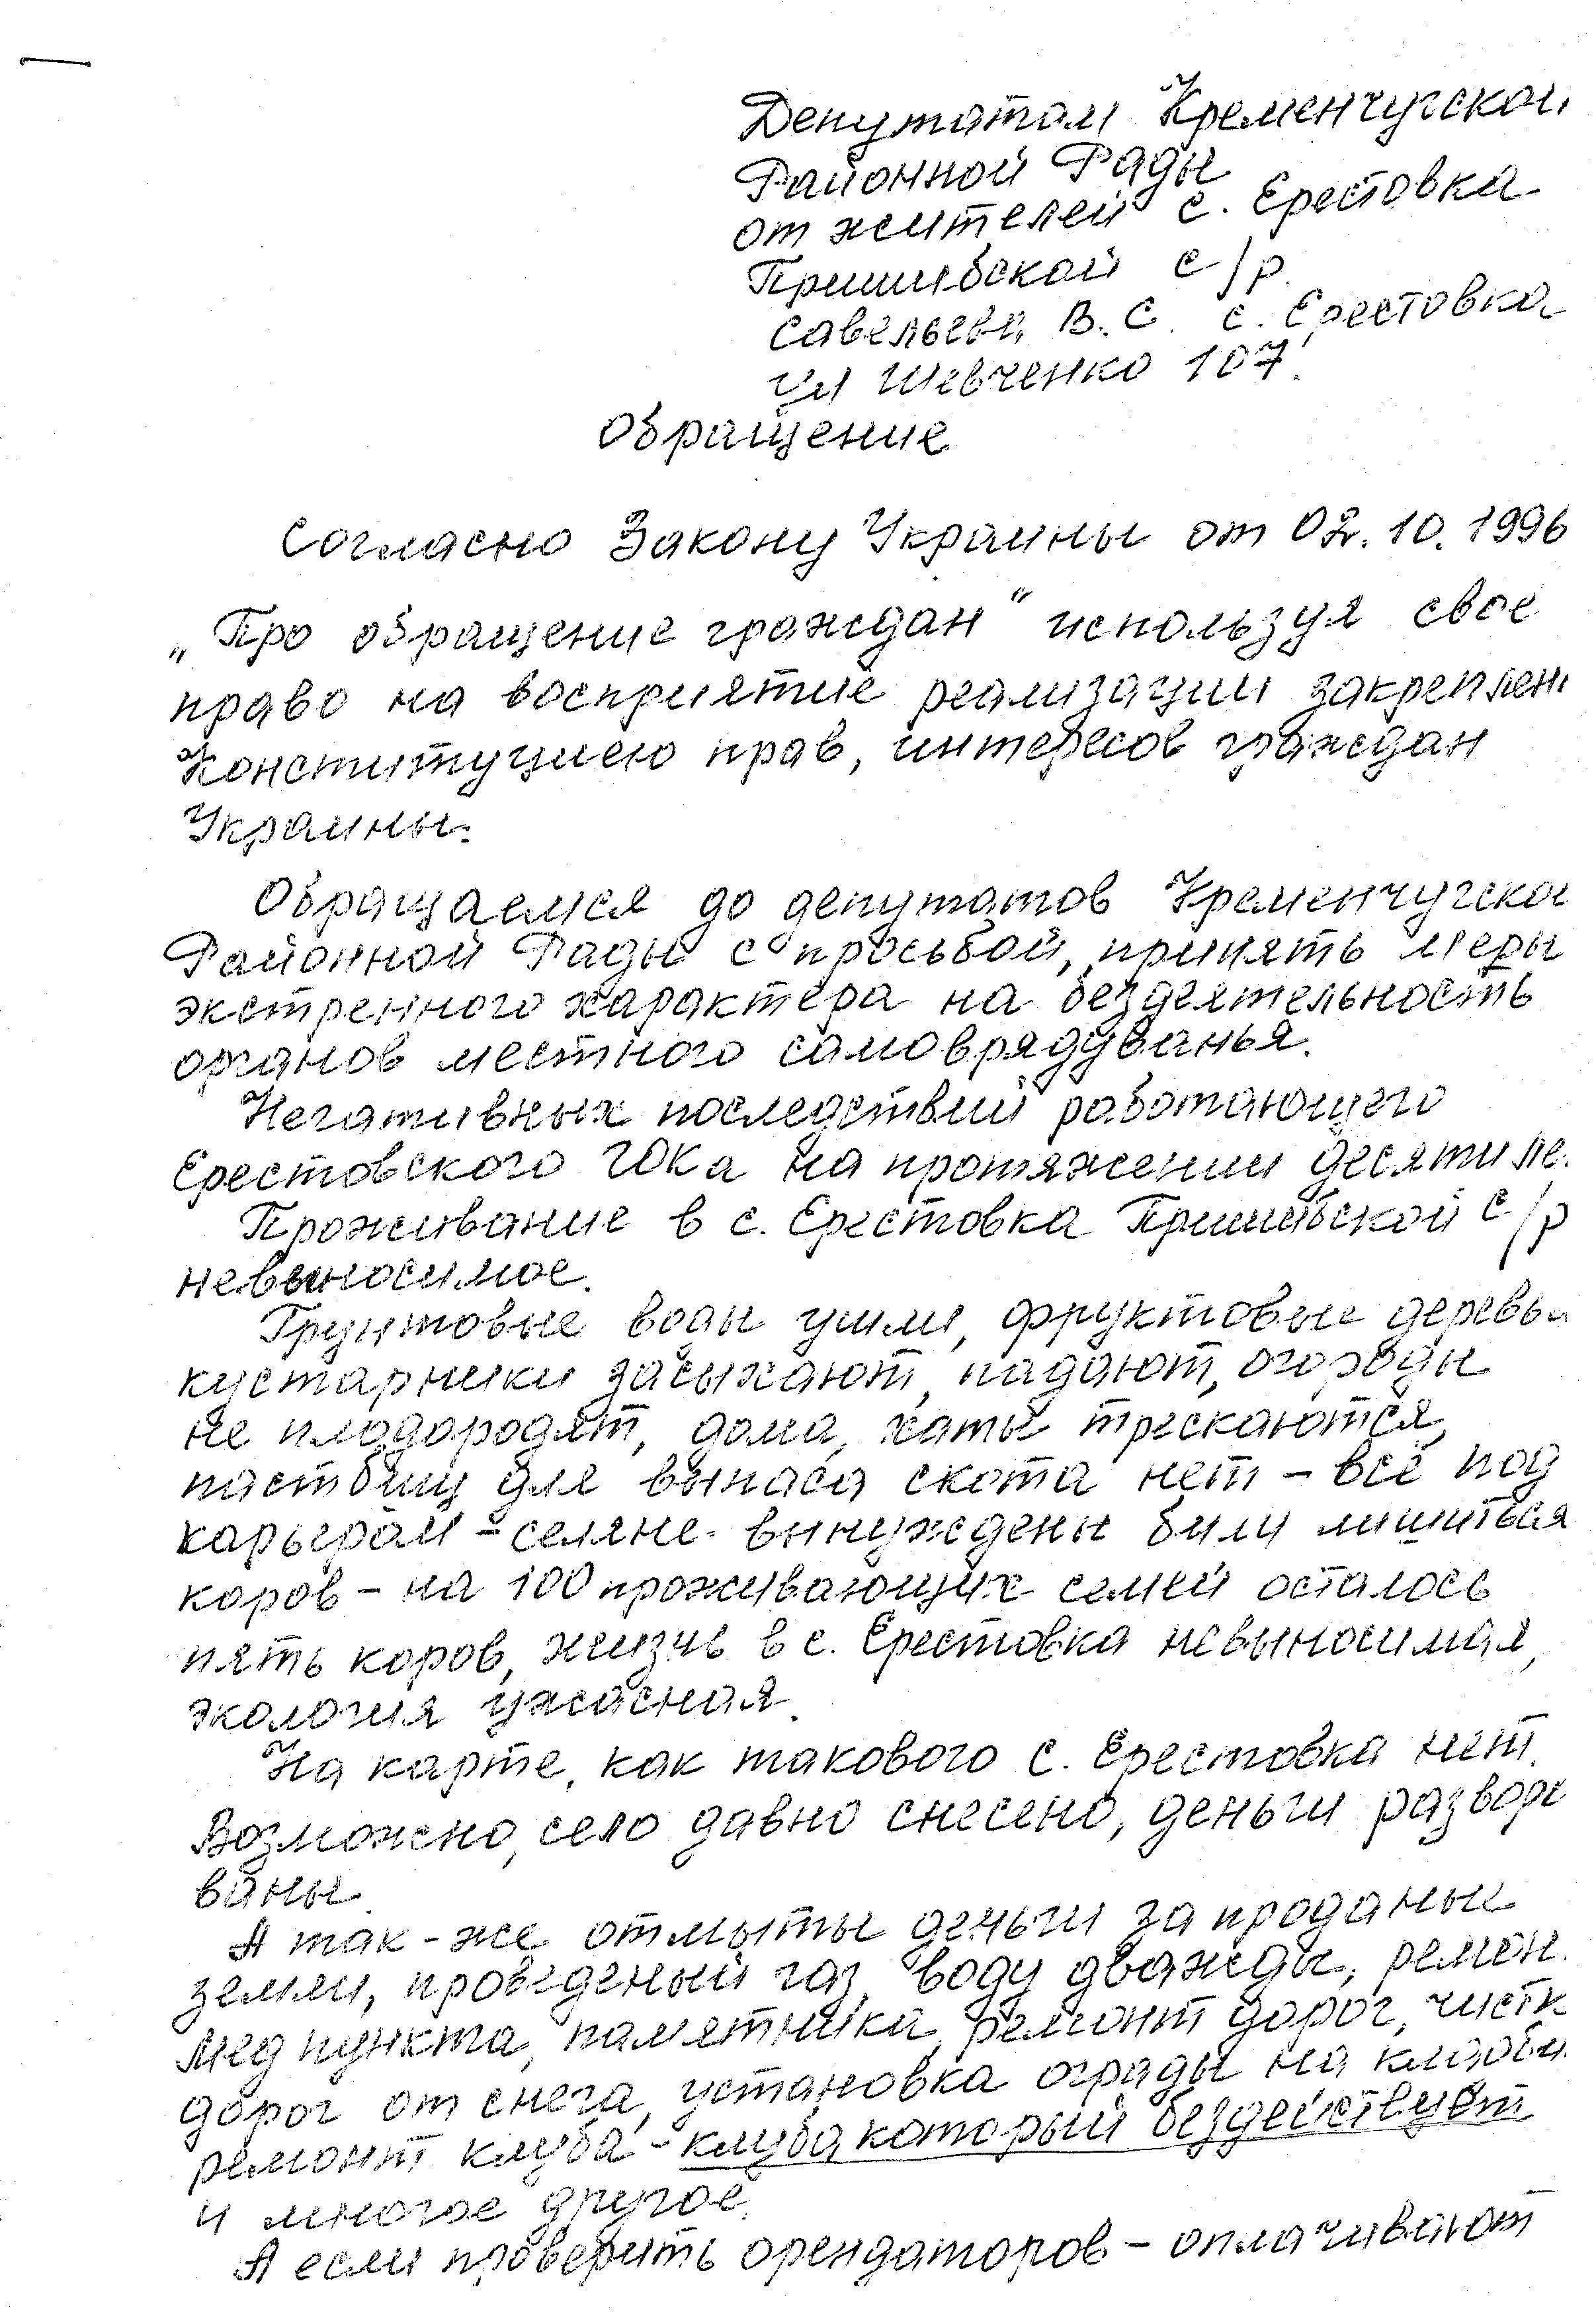 Депутатам Кременчугской
Районной Рады
от жителей с. Ерестовка
Пришибской с/р.
Савельева В. С. с. Ерестовка
ул Шевченко 107.
Обращение
Согласно Закону Украины от 02.10.1996
„Про обращение граждан“ используя свое
право на восприятие реализации закреплен
Конституциею прав, интересов граждан
Украины.
Обращаемся до депутатов Кременчугско
Районной Рады с просьбой, принять меры
экстренного характера на бездеятельность
органов местного самоврядуванья.
Негативных последствий работающего
Ерестовского ГОКа на протяжении десятиле
Проживание в с. Ерестовка Пришибской с/р
невыносимое.
Грунтовые воды ушли, фруктовые деревья
кустарники засыхают, падают, огороды
не плодородят, дома, хаты трескаются,
пастбищ для выпаса скота нет - всё под
карьером - селяне вынуждены были лишиться
коров - на 100 проживающих семей осталось
пять коров, жизнь в с. Ерестовка невыносимая,
экология ужасная.
На карте, как такового с. Ерестовка нет.
Возможно, село давно снесено, деньги разворо
ваны.
А так-же отмыты деньги за проданые
земли, проведеный газ, воду дважды, ремон
мед пункта, памятника, ремонт дорог, чистк
дорог от снега, установка ограды на кладби
ремонт клуба - клуба который бездействует
и многое другое.
А если проверить орендаторов - оплачивают